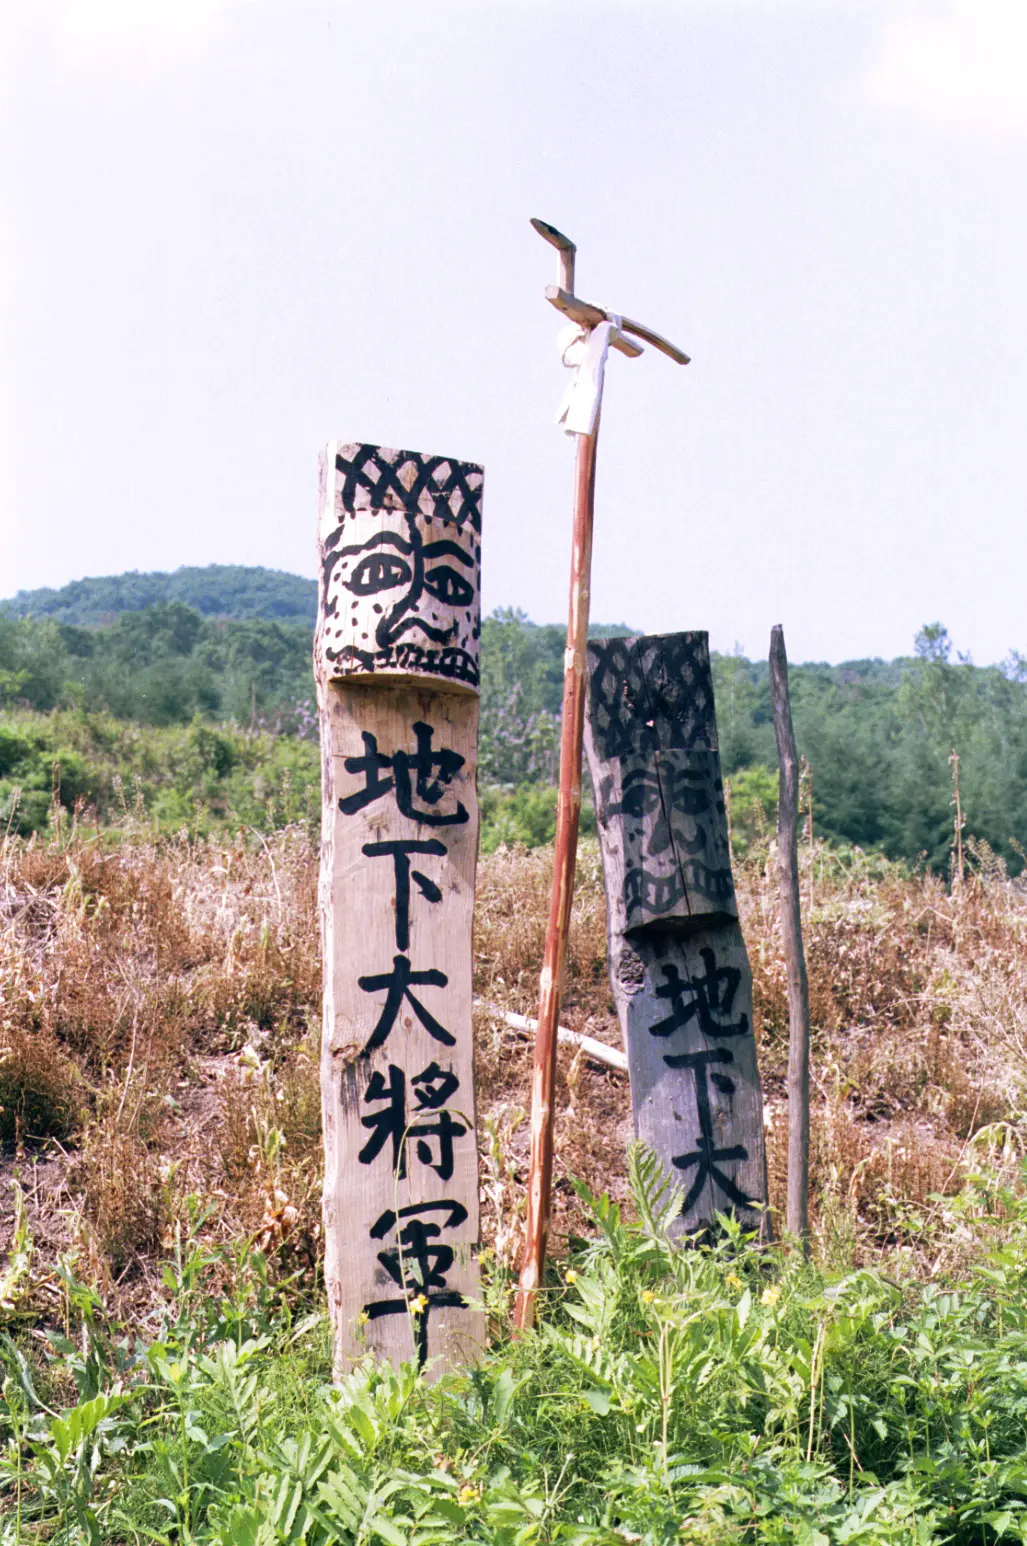 地下大將軍
地下大